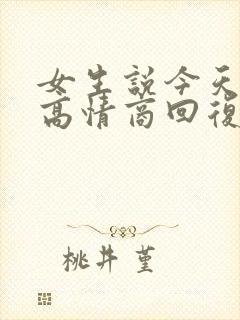 女生說今天
高情商回復
桃井 堇